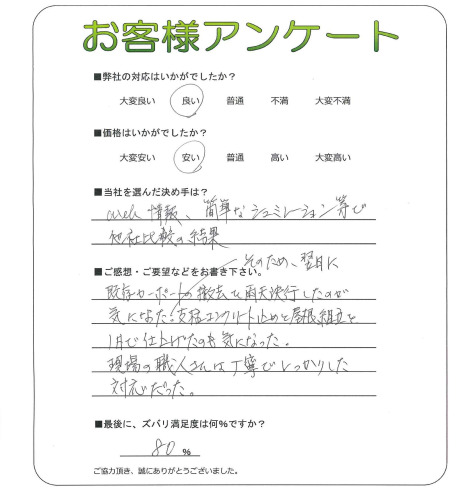 お客様アンケート
■弊社の対応はいかがでしたか？
大変良い 良い 普通 不満 大変不満
■価格はいかがでしたか？
大変安い 安い 普通 高い 大変高い
■当社を選んだ決め手は？
web 情報、簡単なシュミレーション等で
他社比較の結果
■ご感想・ご要望などをお書き下さい。
そのため、翌日に
既存カーポートの撤去で雨天決行したのが
気になった。支柱コンクリート止めと屋根組立を
1日で仕上げたのも気になった。
現場の職人さんは丁寧でしっかりした
対応だった。
■最後に、ズバリ満足度は何%ですか？
80 %
ご協力頂き、誠にありがとうございました。